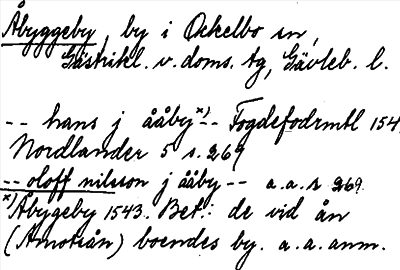 Åbyggeby, by i Ockelbo sn,
Gästrikl. v. doms. tg, Gävleb. l.
-- hans j ååby x) -- Fogdefodrmtl 154
Nordlander 5 s. 269
-- oloff nilsson j ååby -- a.a. s 269.
x) Åbygeby 1543. Bet.: de vid ån
(Åmotsån) boendes by. a.a. anm.